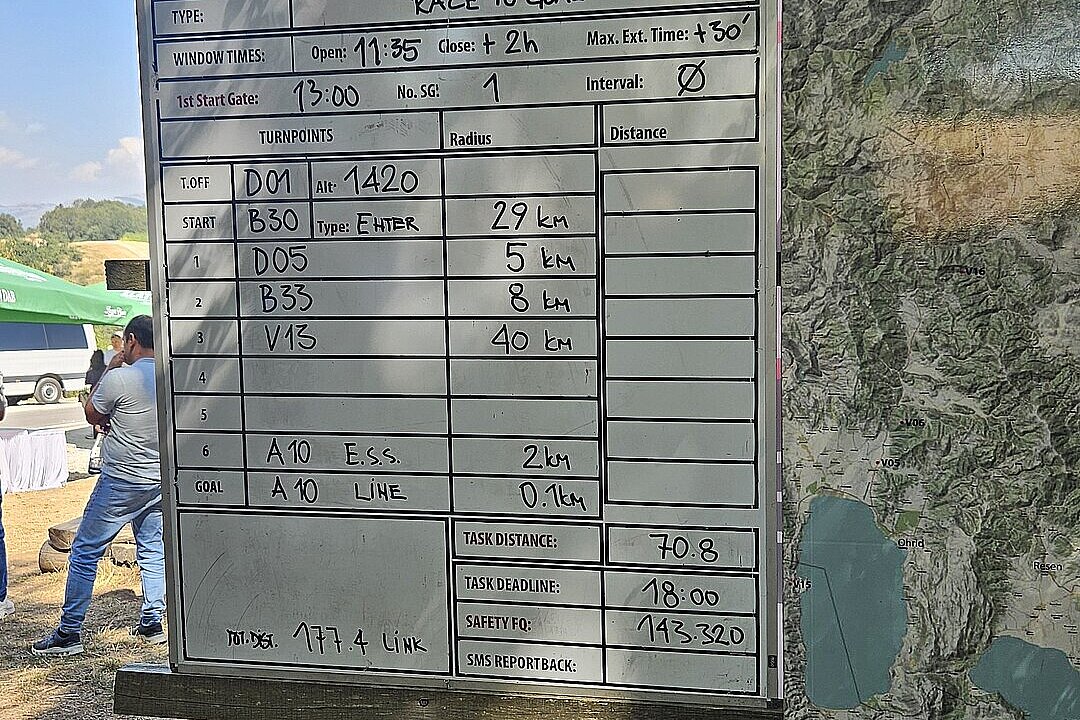 TYPE: RACE TO GOAL
WINDOW TIMES: Open: 11:35 Close: + 2h Max. Ext. Time: +30'
1st Start Gate: 13:00 No. SG: 1 Interval: Ø
TURNPOINTS Radius Distance
T.OFF D01 Alt: 1420
START B30 Type: ENTER 29 km
1 D05 5 km
2 B33 8 km
3 V13 40 km
4
5
6 A10 E.S.S. 2km
GOAL A10 LINE 0.1km
TASK DISTANCE: 70.8
TASK DEADLINE: 18:00
SAFETY FQ: 143.320
TOT. DIST. 177.4 LINK
SMS REPORTBACK:
V16
V06
V05
Ohrid
Resen
V15